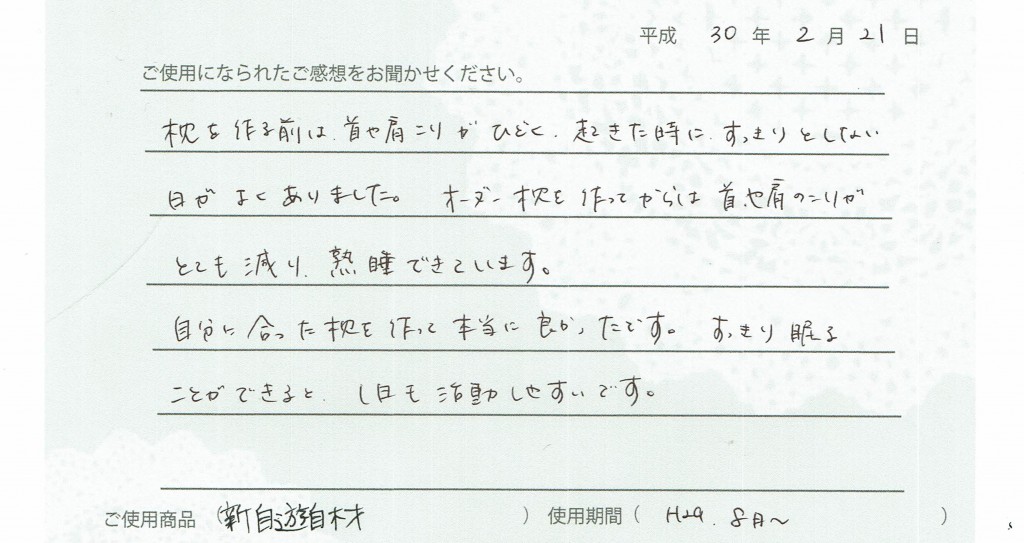 平成 30 年 2 月 21 日
ご使用になられたご感想をお聞かせください。
枕を作る前は、首や肩こりがひどく、起きた時に、すっきりとしない
日がよくありました。オーダー枕を作ってからは首や肩のこりが
とても減り、熟睡できています。
自分に合った枕を作って本当に良かったです。すっきり眠る
ことができると、1日も活動しやすいです。
ご使用商品（新自遊自材）使用期間（H29. 8月〜）